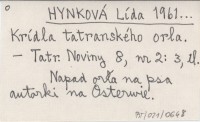 HYNKOVÁ Lída 1961...
Krídla tatranského orla.
- Tatr. Noviny 8, nr 2: 3, il.
Napad orla na psa
autorki na Osterwie.